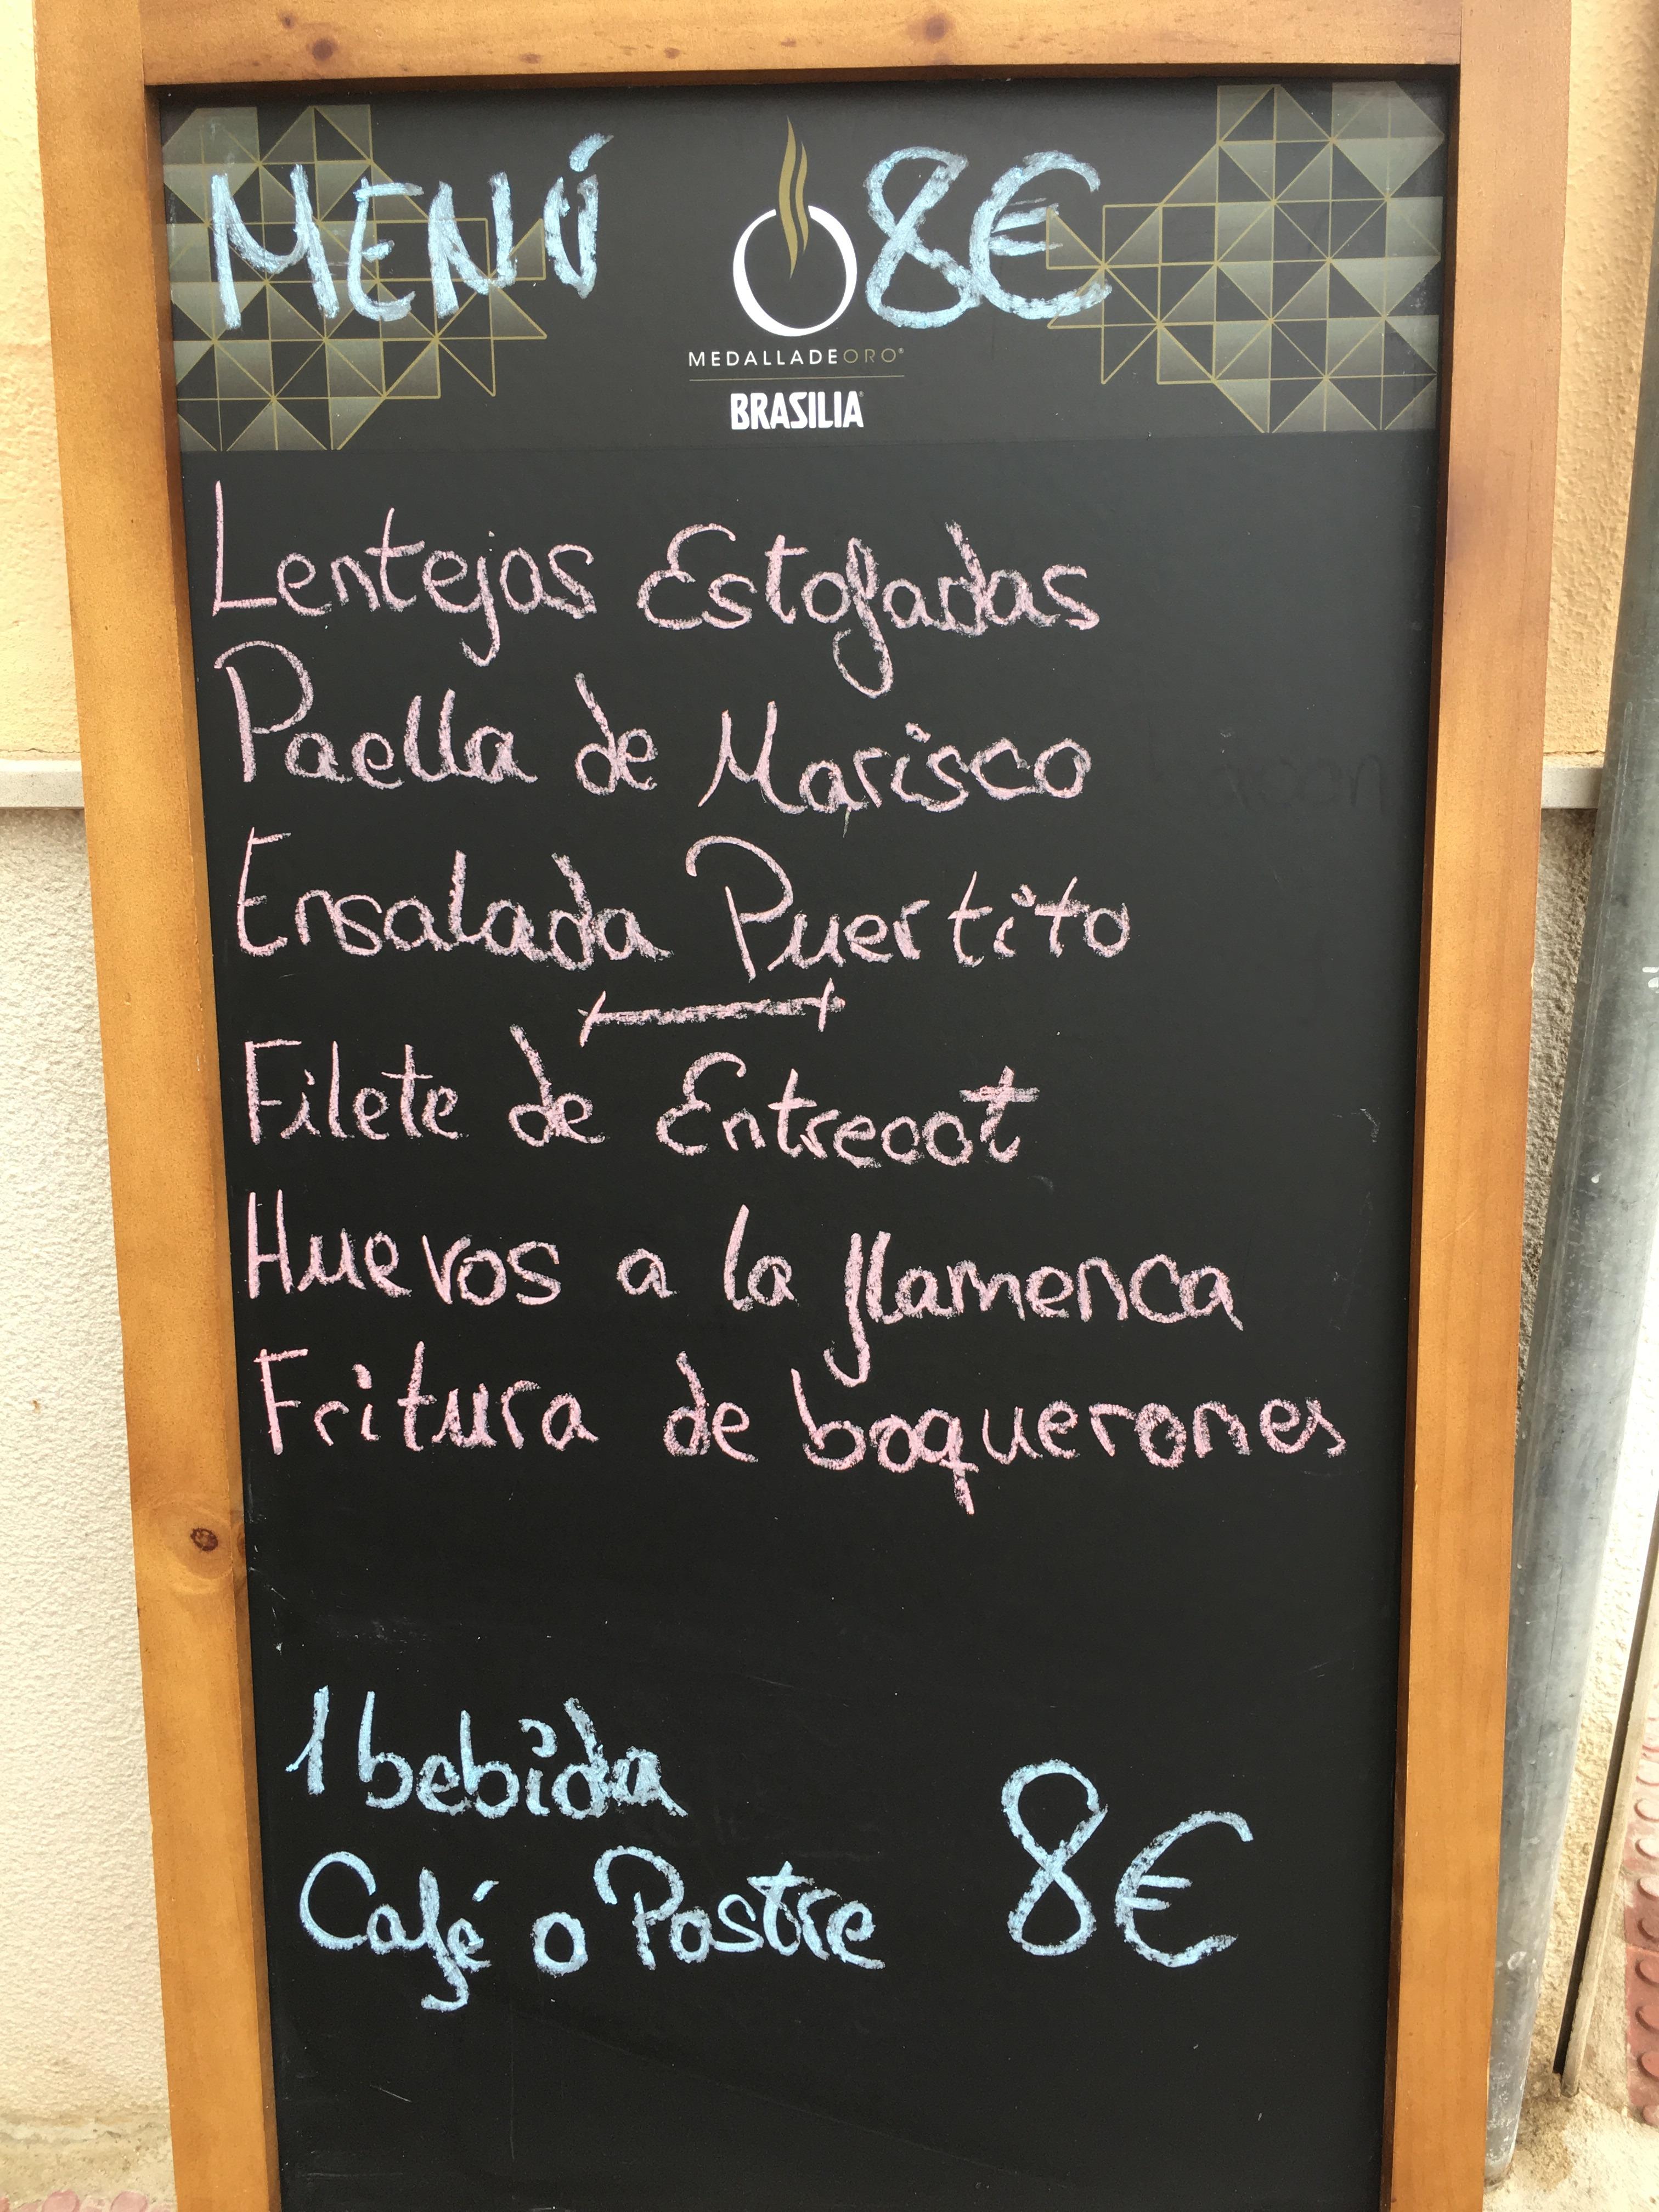 MENÚ 8€
MEDALLADEORO®
BRASILIA
Lentejas Estofadas
Paella de Marisco
Ensalada Puertito
Filete de Entrecot
Huevos a la flamenca
Fritura de boquerones
1 bebida
Café o Postre 8€